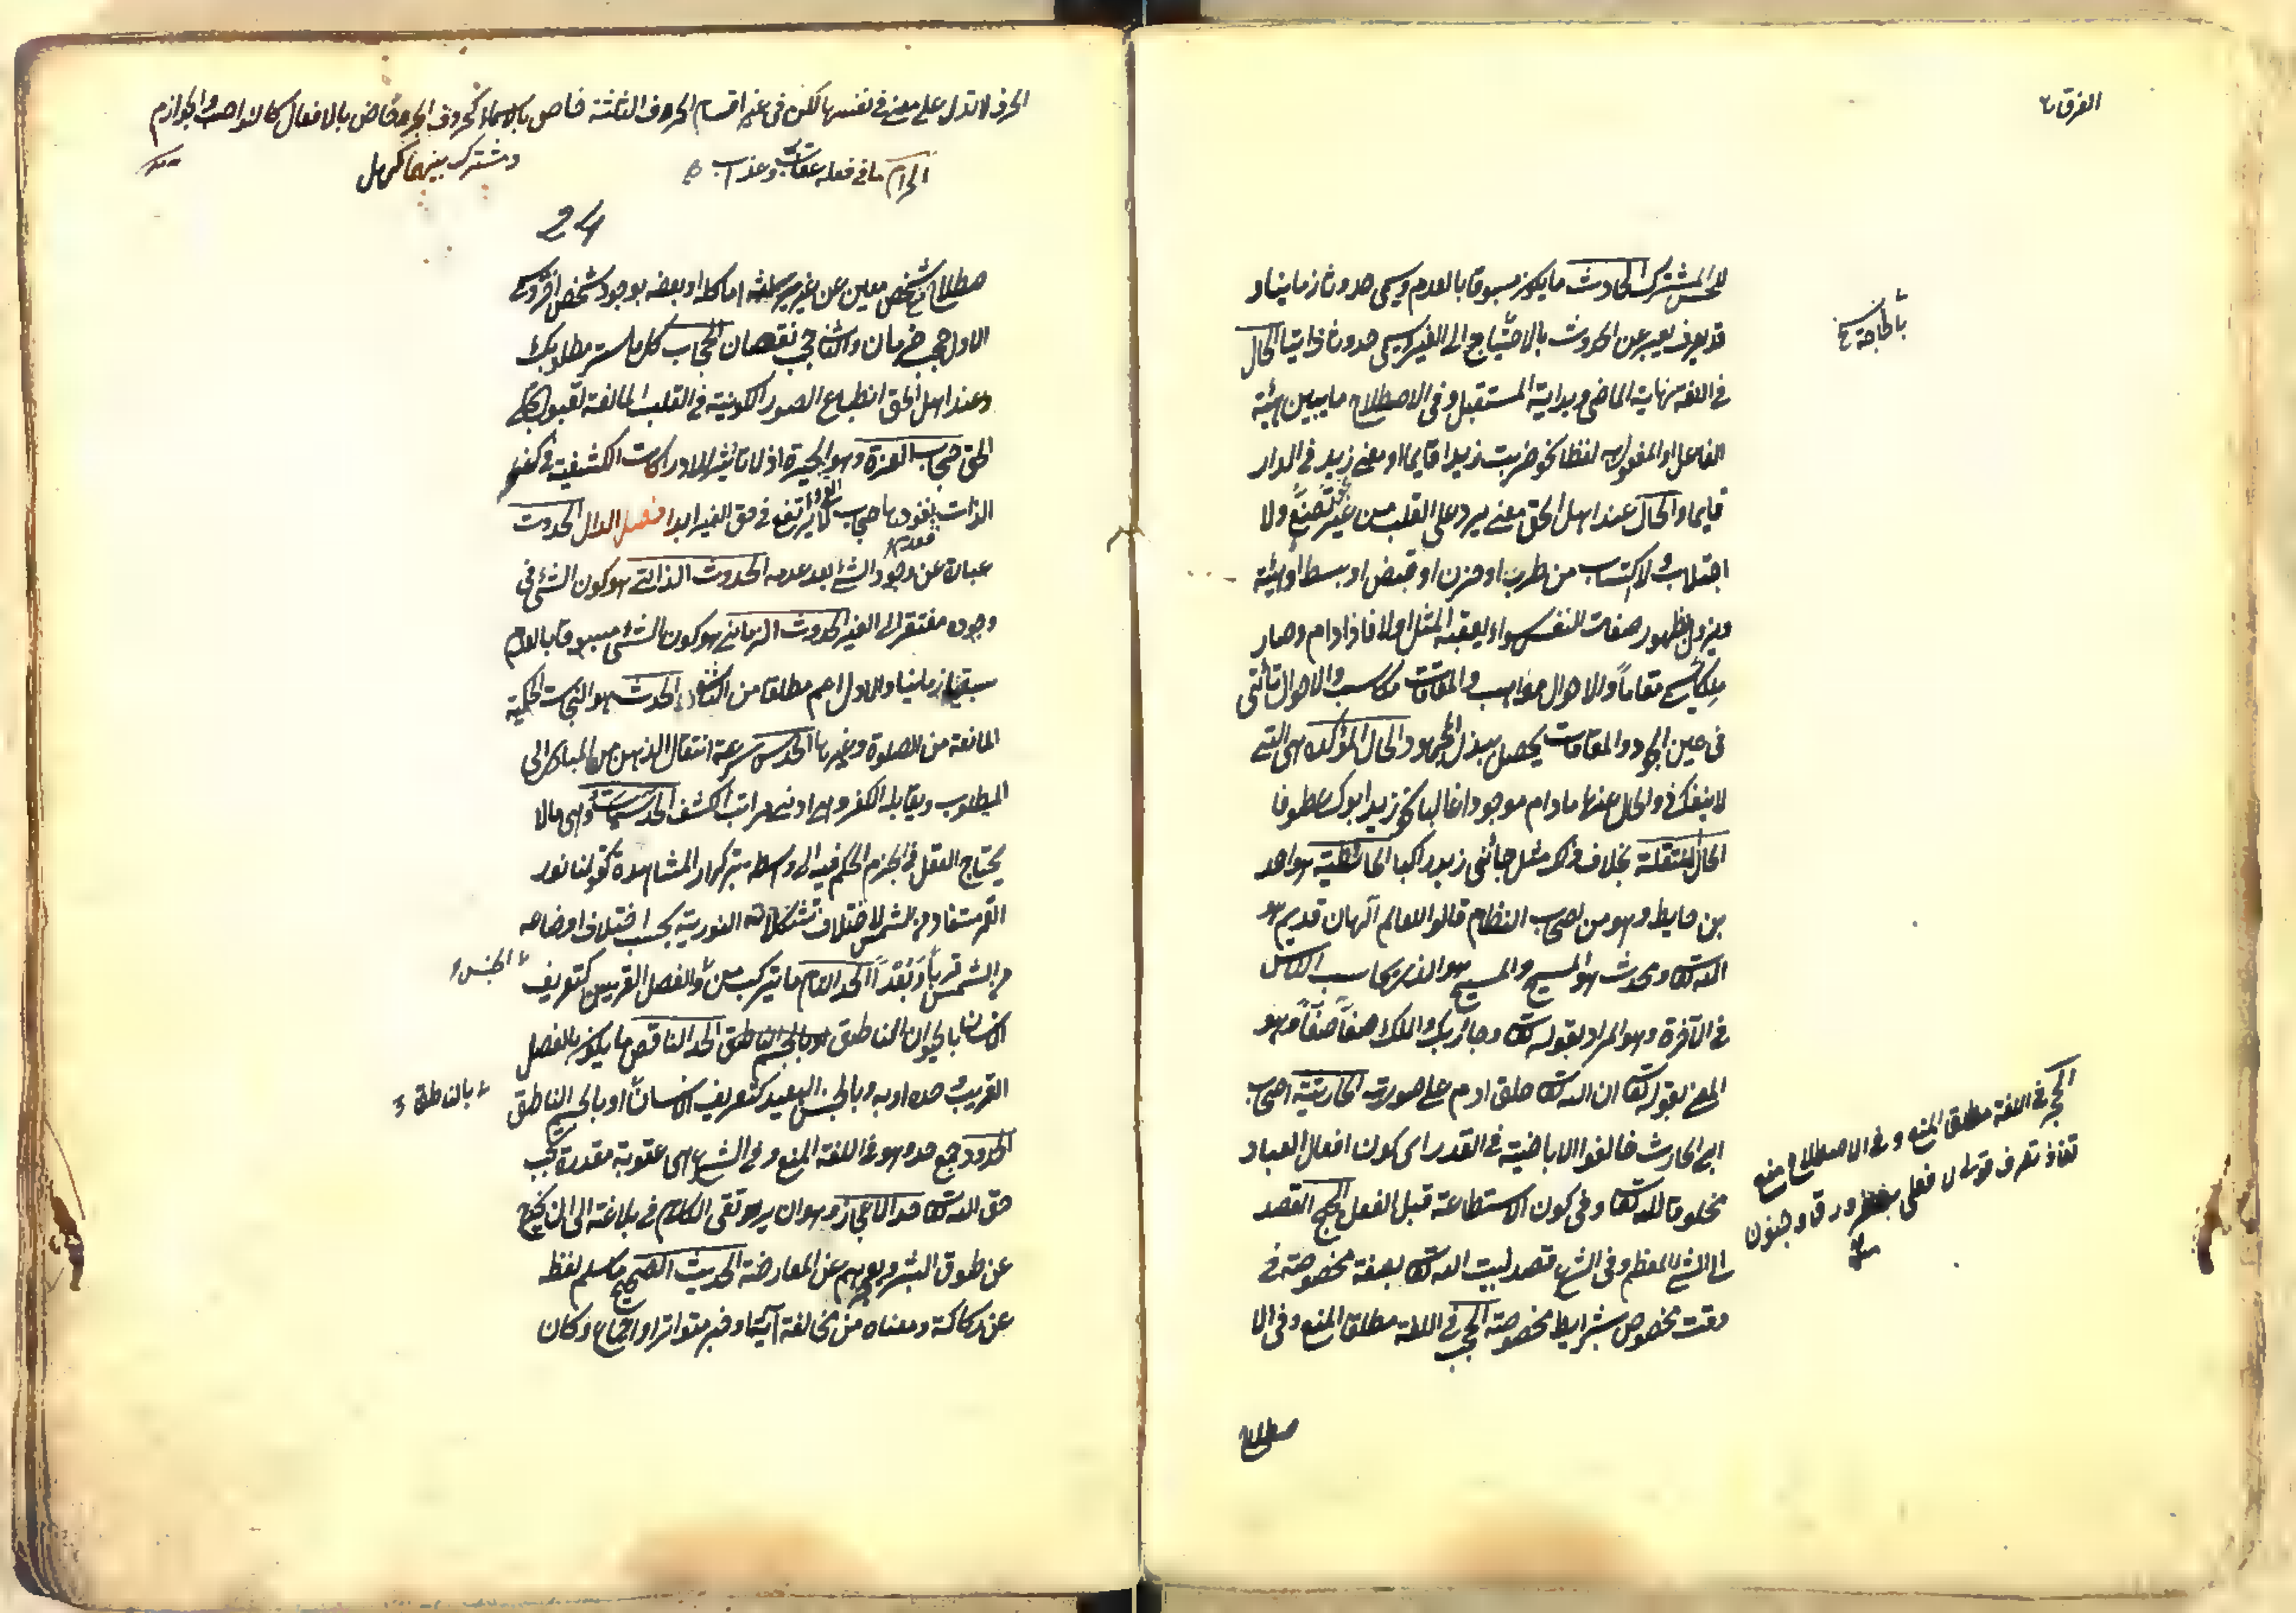 الفرق ب
للحس المشترك الحادث ما يكون مسبوقا بالعدم ويسمى حدوثا زمانيا و
قد يعبر عن الحدوث بالاحتياج الى الغير ويسمى حدوثا ذاتيا الحال
بالحاجة
في اللغة نهاية الماضي وبداية المستقبل وفي الاصطلاح ما يبين هيئة
الفاعل او المفعول به لفظا نحو ضربت زيدا قايما او معنى زيد في الدار
قايما والحال عند اهل الحق معنى يرد على القلب من غير تصنع ولا
اجتلاب ولا اكتساب من طرب او حزن او قبض او بسط او هيئة
ويزول بظهور صفات النفس سواء يعقبه المثل اولا فاذا دام وصار
ملكا يسمى مقاماً والاحوال مواهب والمقامات مكاسب والاحوال تأتي
في عين الجود والمقامات يحصل ببذل المجهود الحال المؤكدة هى التي
لا ينفك ذو الحال عنها ما دام موجودا غالبا نحو زيد ابوك عطوفا
الحال المنتقلة بخلاف ذلك مثل جائني زيد راكبا الحائطية هو احمد
بن حايط وهو من اصحاب النظام قالوا للعالم الهان قديم هو
الله تعا ومحدث هو المسيح والمسيح هو الذي يحاسب الناس
في الآخرة وهو المراد بقوله تعا وجاء ربك والملك صفاً صفاً وهو
المعنى بقوله تعا ان الله تعا خلق ادم على صورته الحارثية اصحاب
ابي الحارث خالفوا الاباضية في القدر اى كون افعال العباد
مخلوقا لله تعا وفي كون الاستطاعة قبل الفعل الحج القصد
الى الشئ المعظم وفي الشرع قصد لبيت الله تعا بصفة مخصوصة في
وقت مخصوص بشرايط مخصوصة الحجب في اللغة مطلق المنع وفي الا
صطلاح
الحجر في اللغة مطلق المنع وفي الاصطلاح منع
نفاذ تصرف قولى لا فعلى لصغر ورق وجنون
الحرف لا تدل على معنى في نفسها لكن في غيره اقسام الحروف الثلثة خاص بالاسماء كحروف الجر وخاص بالافعال كالنواصب والجوازم
ومشترك بينهما كهل
الحرام ما في فعله عقاب وعذاب
24
صطلاح منع شخص معين عن غير ميراثه اما كله او بعضه بوجود شخص اخر وسمى
الاول حجب حرمان والثاني حجب نقصان الحجاب كل ما ستر مطلوبك
وعند اهل الحق انطباع الصور الكونية في القلب المانعة لقبول تجلى
الحق حجاب العزة وهو الحيرة اذ لا تأثير للادراكات الكشفية في كنه
الذات بنفوذها حجاب لا يرتفع في حق الغير ابدا فصل الدال الحدوث
عبارة عن وجود الشئ بعد عدمه الحدوث الذاتي هو كون الشئ في
وجوده مفتقرا الى الغير الحدوث الزماني هو كون الشئ مسبوقا بالعدم
سبقا زمانيا والاول اعم مطلقا من الثاني الحدث هو النجاسة الحكمية
المانعة من الصلوة وغيرها الحدس سرعة انتقال الذهن من المبادى الى
المطلوب ويقابله الفكر وهي ادنى مراتب الكشف الحدسيات وهى ما لا
يحتاج العقل في الجزم الحكم فيه الى واسطة بتكرار المشاهدة كقولنا نور
القمر مستفاد من الشمس لاختلاف تشكلاته النورية بحسب اختلاف اوضاعه
من الشمس قرباً وبعداً الحد التام ما يتركب من والفصل القريبين كتعريف
الجنس
الانسان بالحيوان الناطق او بالجسم الناطق الحد الناقص ما يكون بالفصل
القريب وحده او به وبالجنس البعيد كتعريف الانسان او بالجسم الناطق
بالناطق
الحدود جمع حد وهو في اللغة المنع وفي الشرع هى عقوبة مقدرة تجب
حق الله تعا حد الاعجاز وهو ان يرتقى الكلام في بلاغته الى ان يخرج
عن طوق البشر ويعجزهم عن المعارضة الحديث الصحيح ما سلم لفظه
عن ركاكة ومعناه من مخالفة آية او خبر متواتر او اجماع وكان